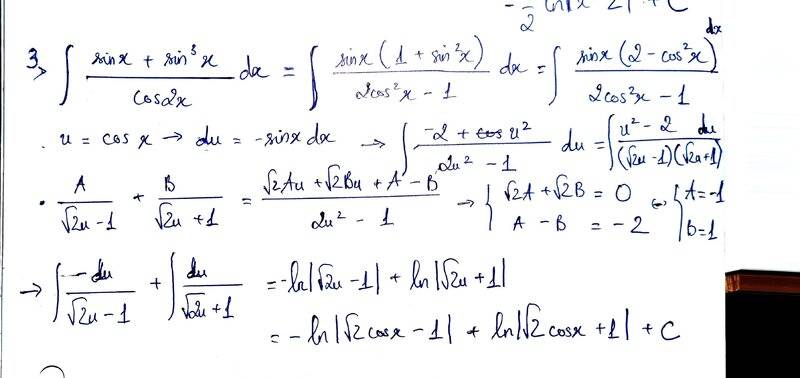 3, ∫ (sinx + sin³x)/(cos2x) dx = ∫ (sinx(1 + sin²x))/(2cos²x - 1) dx = ∫ (sinx(2 - cos²x))/(2cos²x - 1) dx
. u = cos x → du = -sinx dx → ∫ (-2 + u²)/(2u² - 1) du = ∫ (u² - 2 du)/((√2u - 1)(√2u + 1))
• A/(√2u - 1) + B/(√2u + 1) = (√2Au + √2Bu + A - B)/(2u² - 1) → { √2A + √2B = 0, A - B = -2 ⇔ { A = -1, b = 1
→ ∫ -du/(√2u - 1) + ∫ du/(√2u + 1) = -ln|√2u - 1| + ln|√2u + 1|
= -ln|√2cosx - 1| + ln|√2cosx + 1| + C